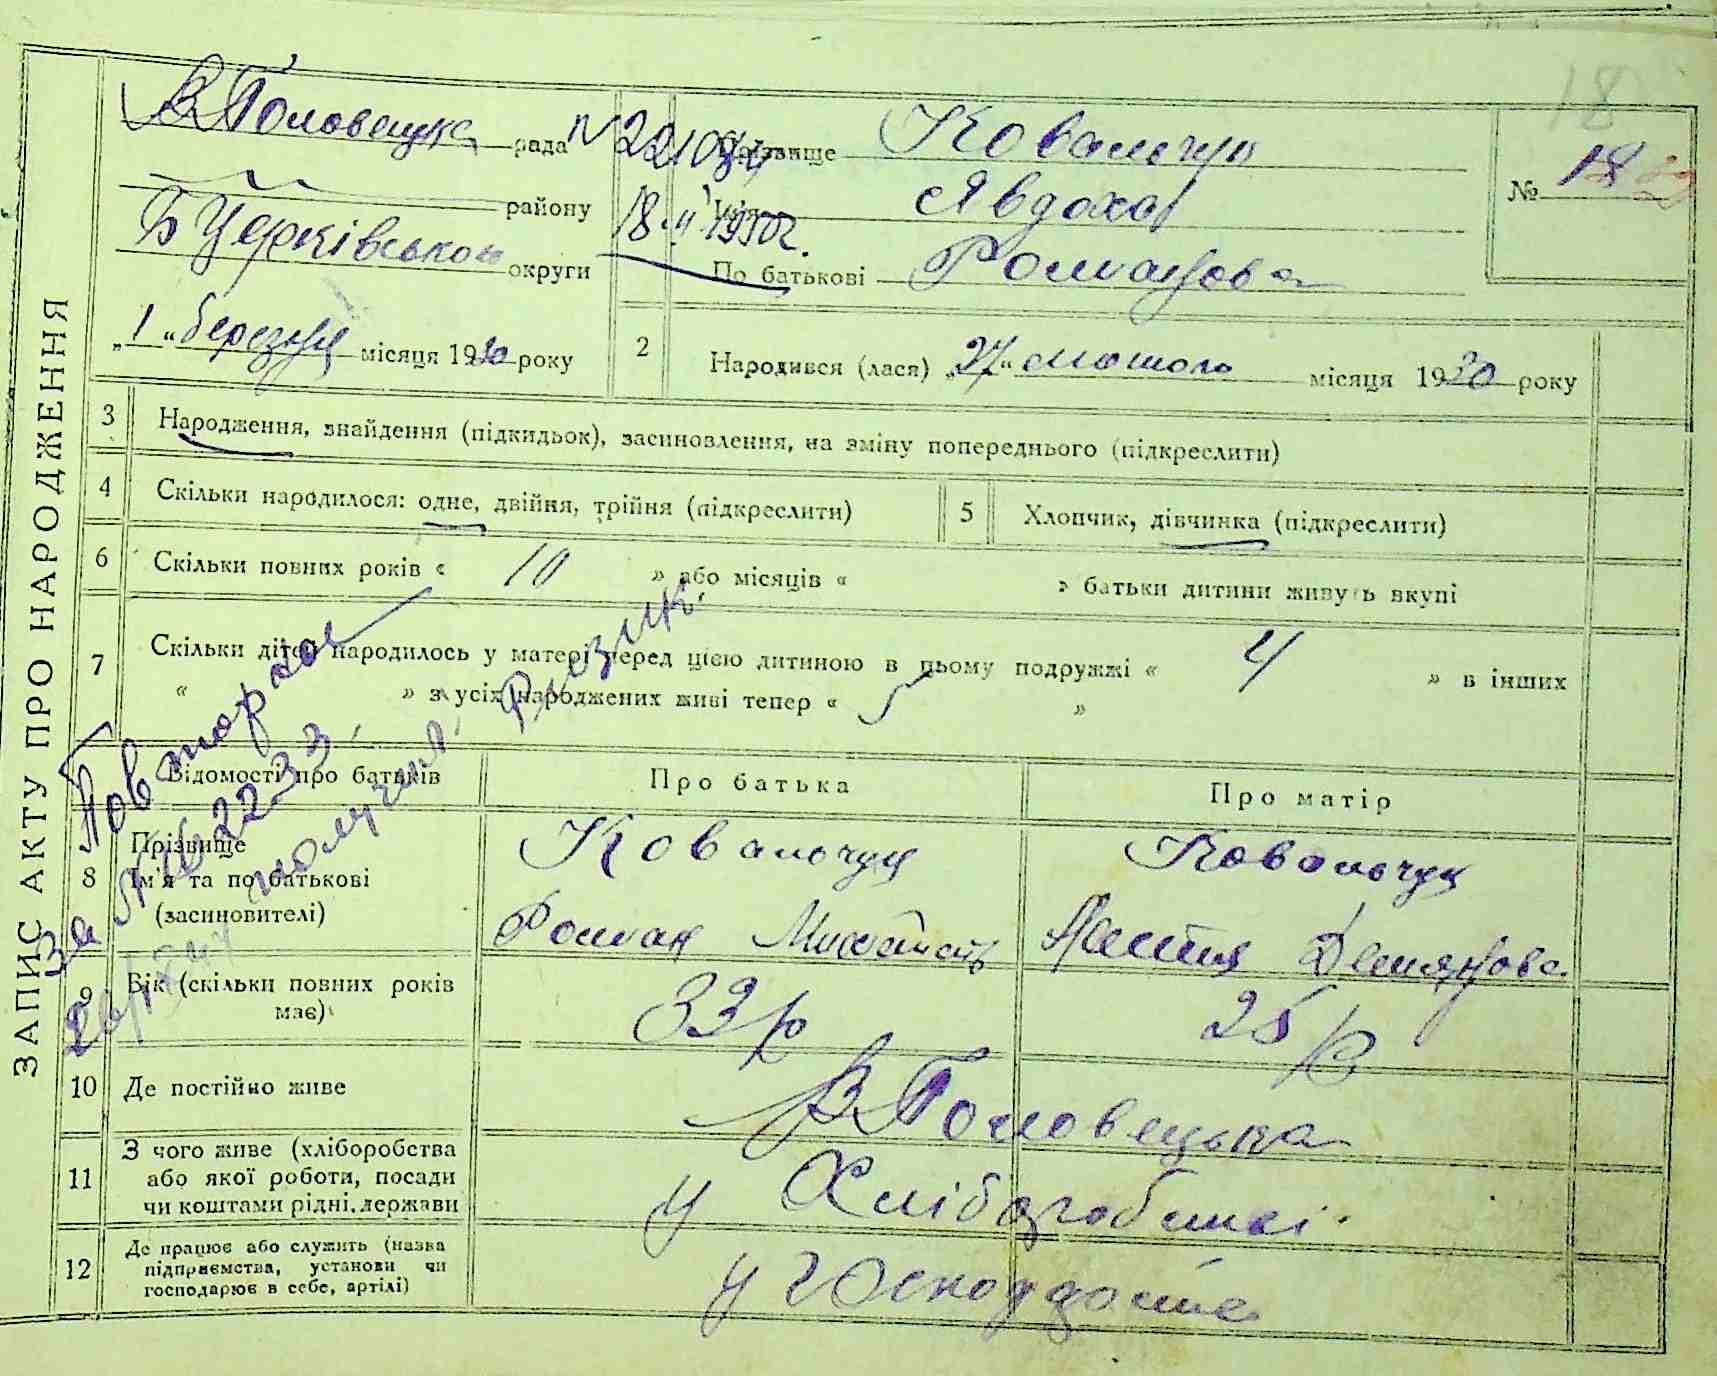 ЗАПИС АКТУ ПРО НАРОДЖЕННЯ
В Половецка рада
району
Б Церківськой округи
„1“ березня місяця 1930 року
18 II 1950 г.
Прізвище Ковальчук
Ім'я Явдоха
По батькові Романова
№ 18
18
2 Народився (лася) „27“ лютого місяця 1930 року
3 Народження, знайдення (підкидьок), засиновлення, на зміну попереднього (підкреслити)
4 Скільки народилося: одне, двійня, трійня (підкреслити)
5 Хлопчик, дівчинка (підкреслити)
6 Скільки повних років « 10 » або місяців « » батьки дитини живуть вкупі
7 Скільки дітей народилось у матері перед цією дитиною в цьому подружжі « 4 » в інших
« » з усіх народжених живі тепер « 5 »
Повторное
за № 2233
получил
Відомості про батьків
Про батька
Про матір
8 Прізвище
Ім'я та по батькові
(засиновителі)
Ковальчук
Роман
Ковальчук
Демянова
9 Вік (скільки повних років має)
33 р
25 р
10 Де постійно живе
В Половецька
11 З чого живе (хліборобства
або якої роботи, посади
чи коштами рідні, держави
у Хліборобстві.
12 Де працює або служить (назва
підприємства, установи чи
господарює в себе, артілі)
у